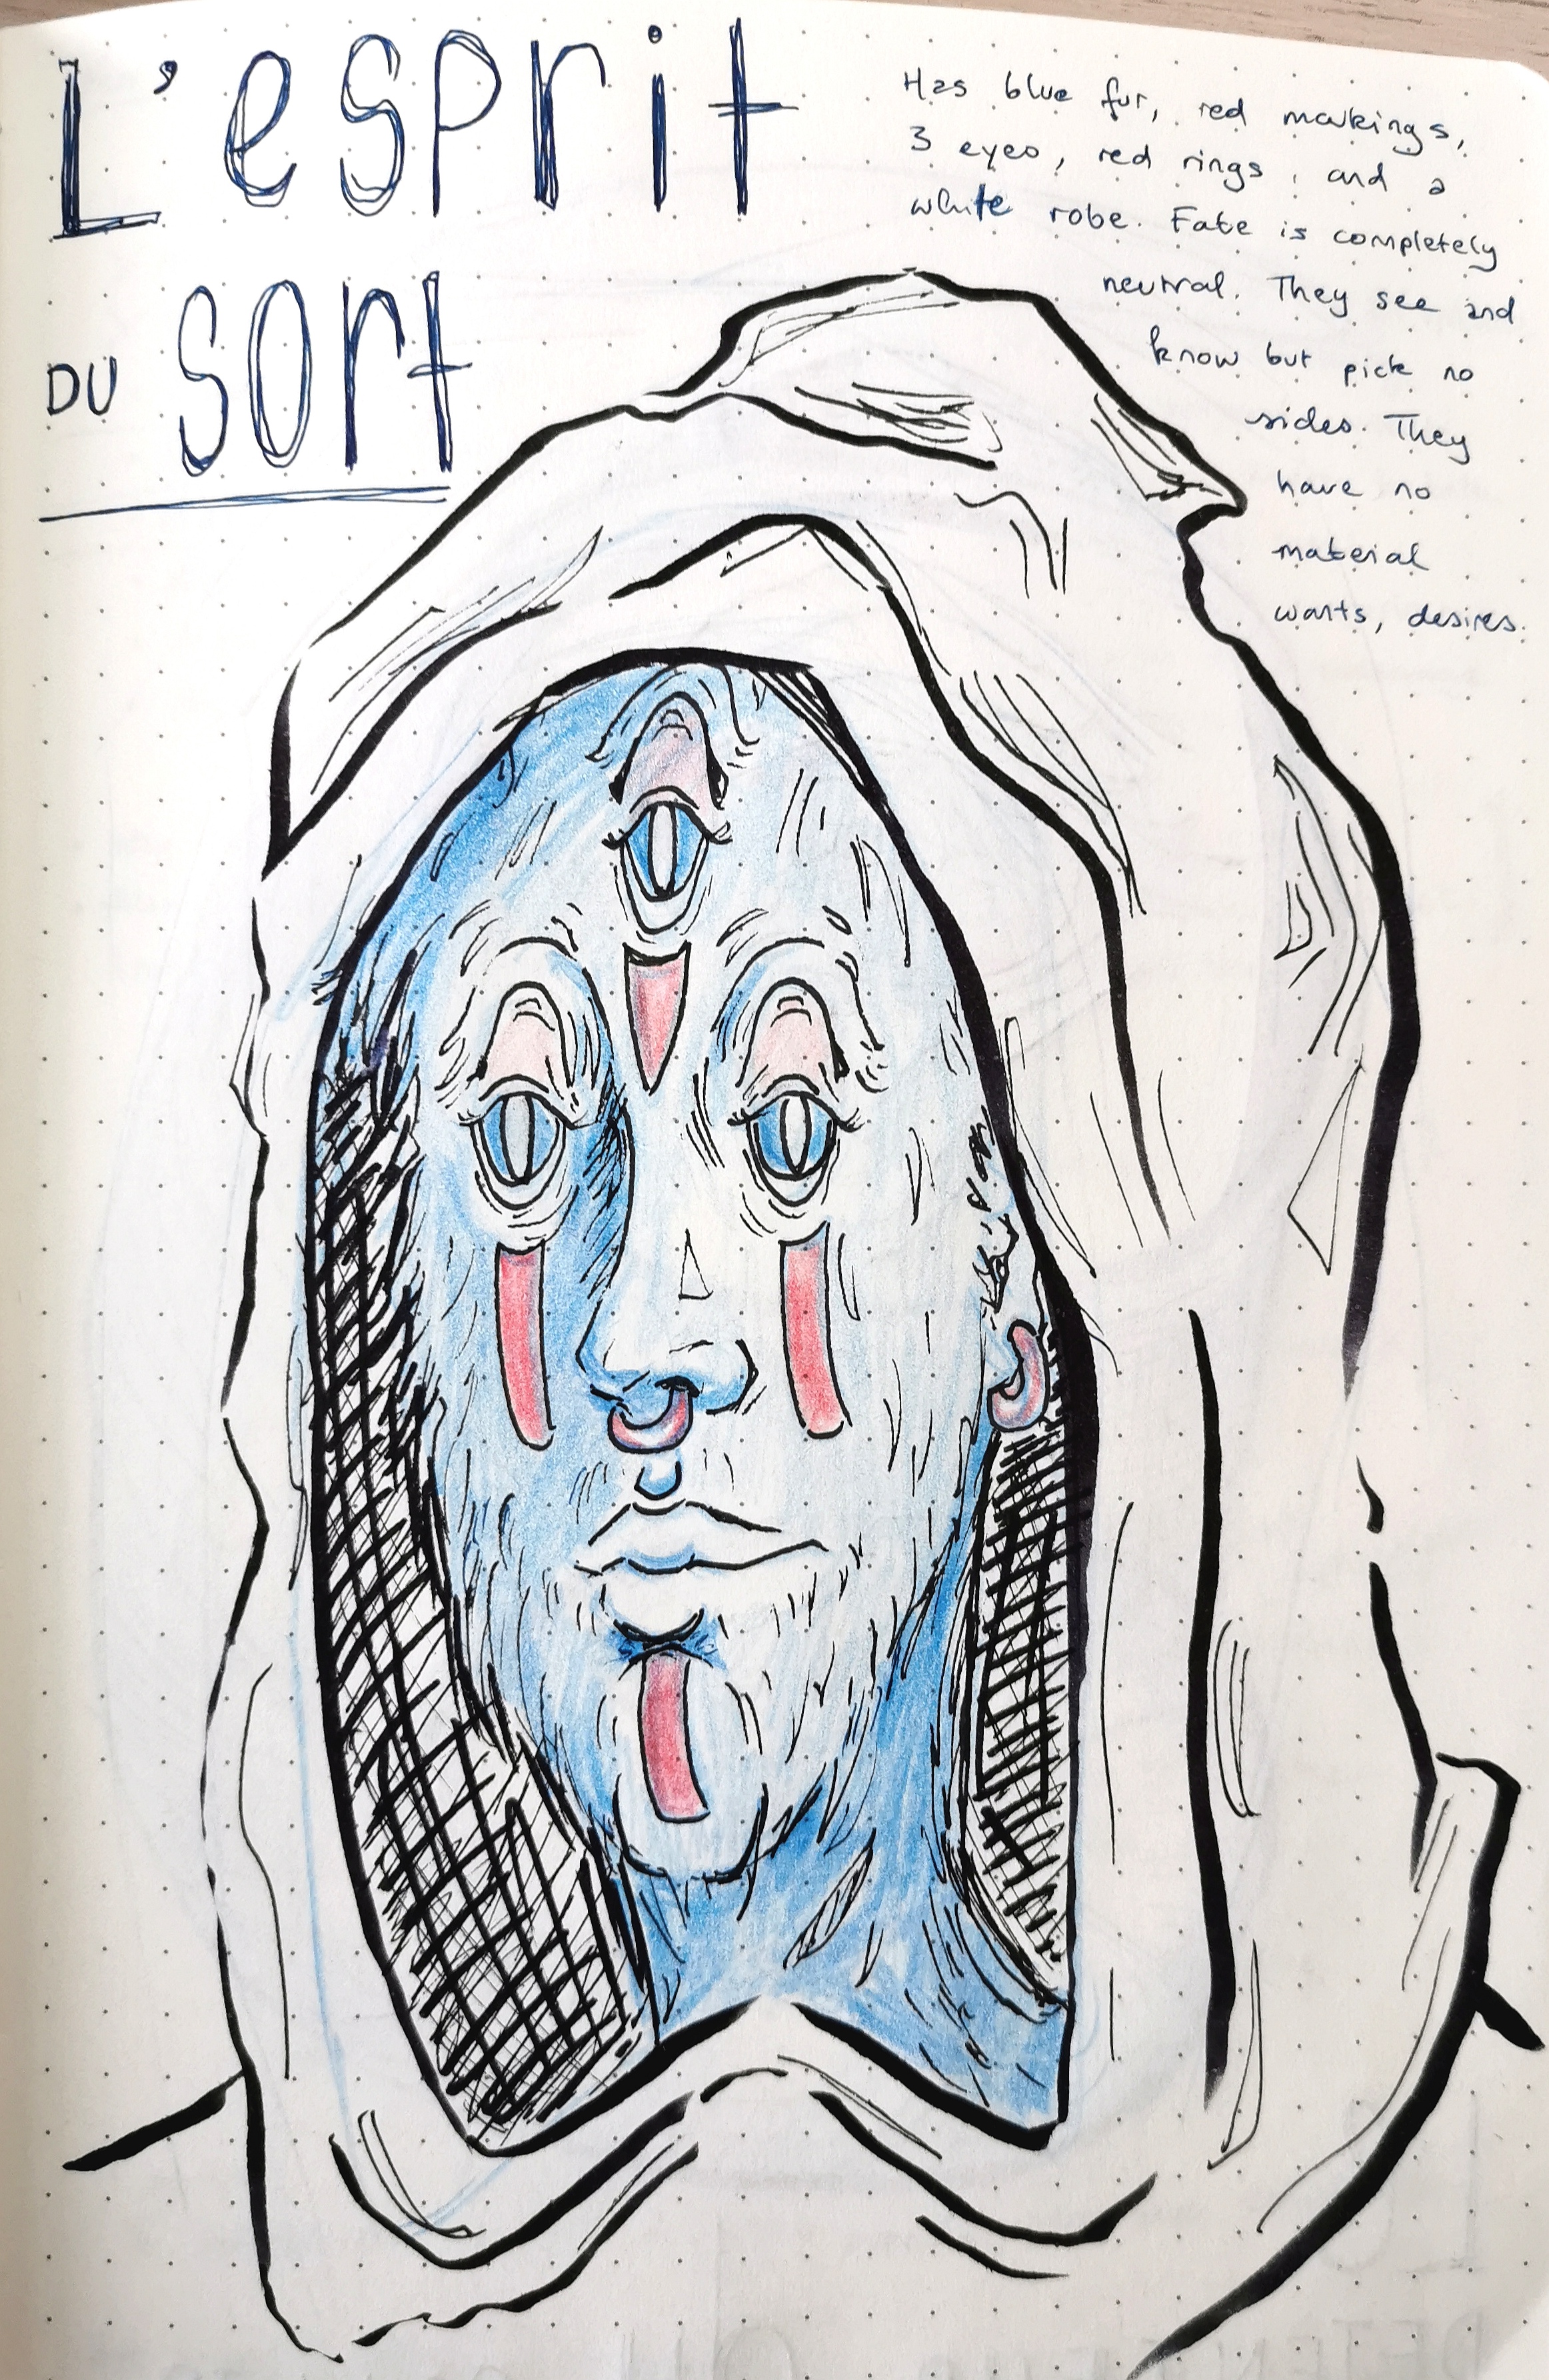 L'esprit
DU sort
Has blue fur, red markings,
3 eyes, red rings, and a
white robe. Fate is completely
neutral. They see and
know but pick no
sides. They
have no
material
wants, desires.